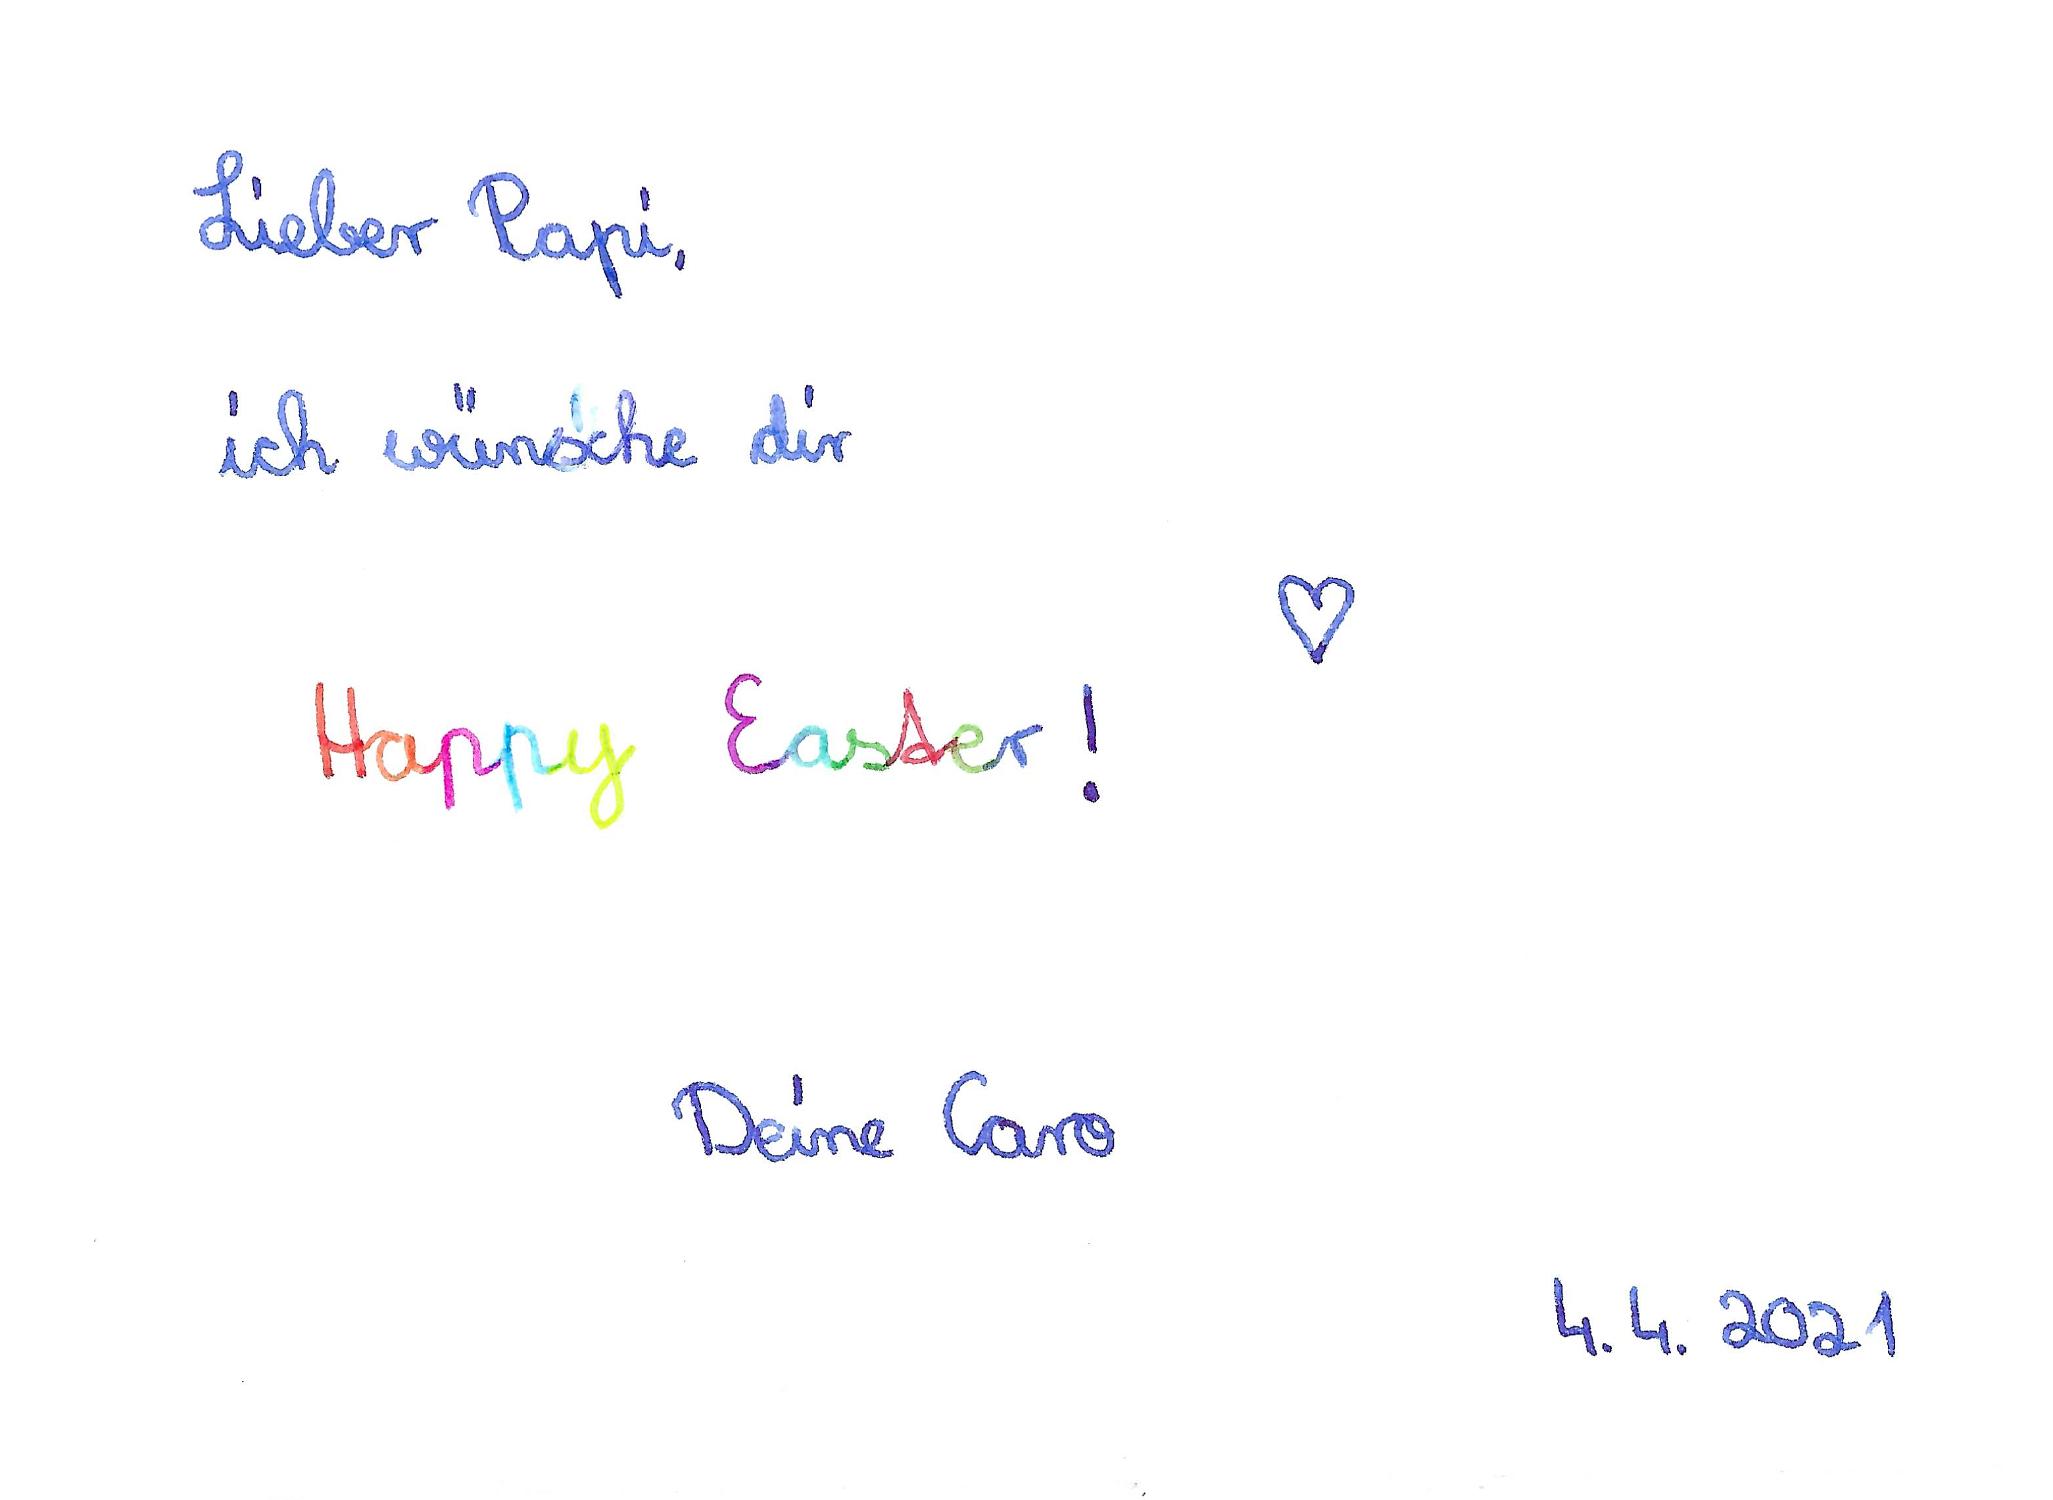 Lieber Papi,
ich wünsche dir
Happy Easter!
Deine Caro
4.4.2021